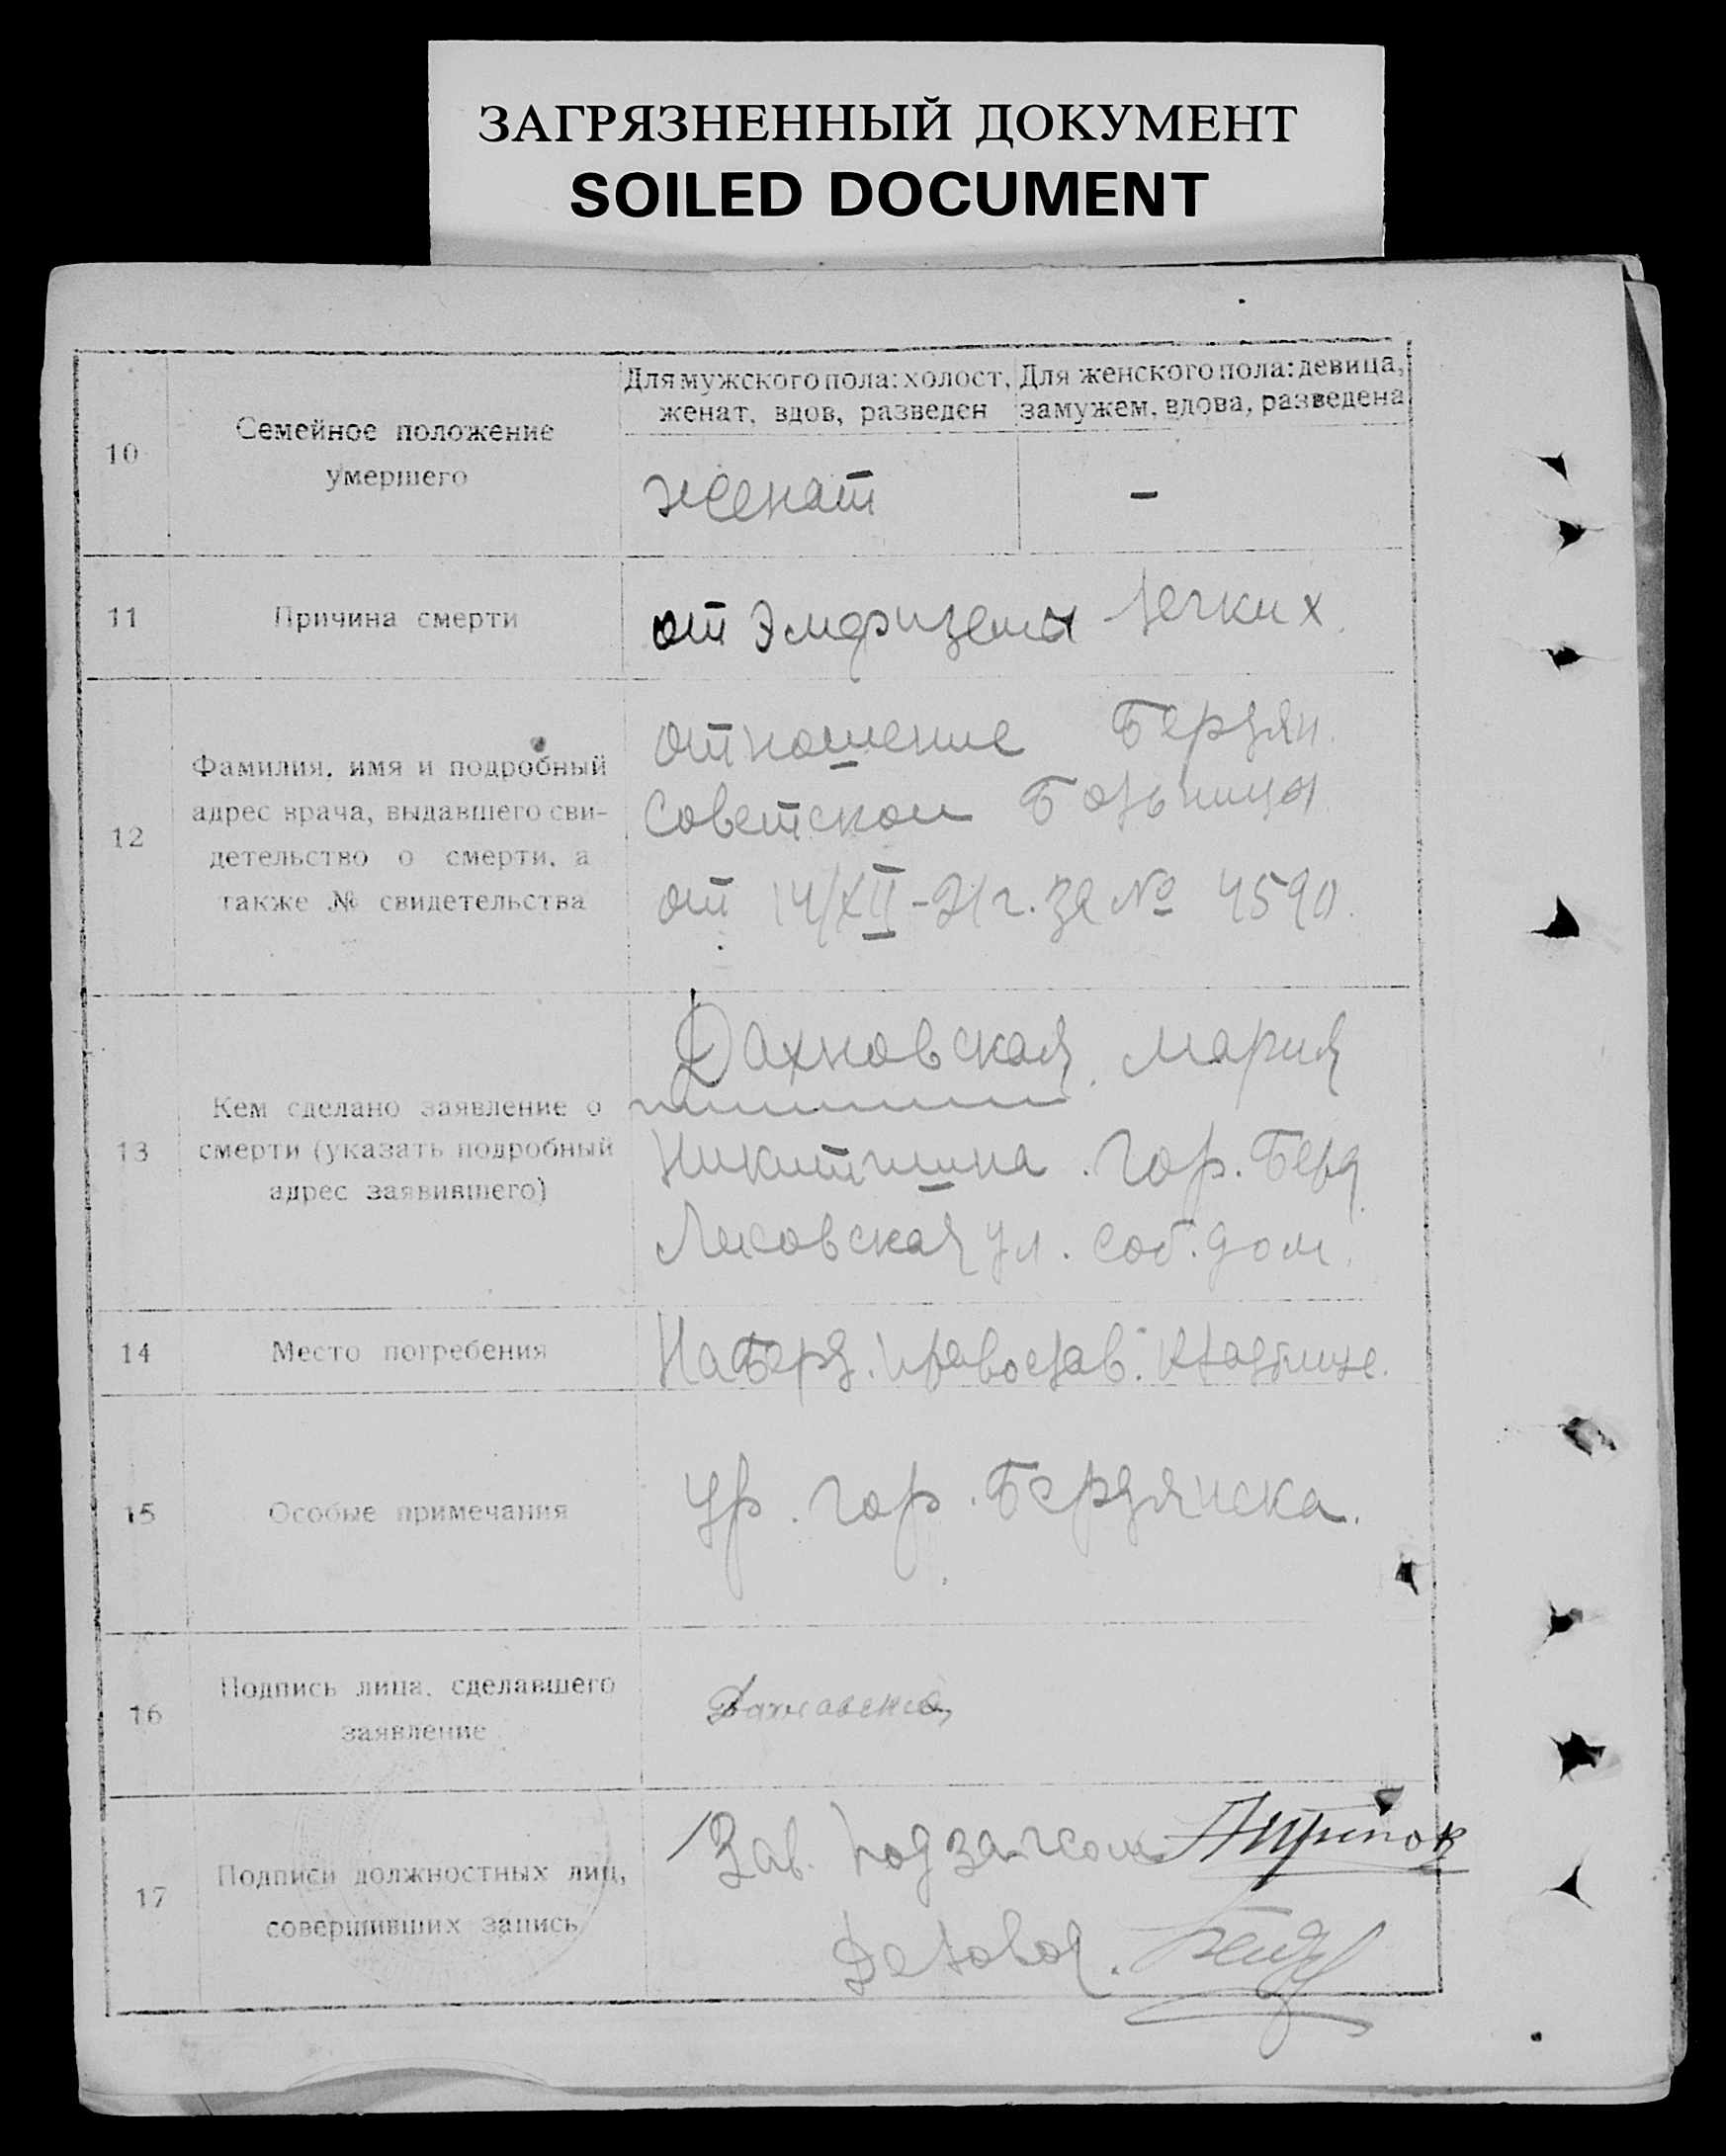 ЗАГРЯЗНЕННЫЙ ДОКУМЕНТ
SOILED DOCUMENT
10
Семейное положение
умершего
Для мужского пола: холост,
женат, вдов, разведен
Для женского пола: девица,
замужем, вдова, разведена
женат
-
11
Причина смерти
от Эмфиземы легких.
12
Фамилия, имя и подробный
адрес врача, выдавшего сви-
детельство о смерти, а
также № свидетельства
отношение Бердян.
Советской Больницы
от 14/XII-21г. за № 4590.
13
Кем сделано заявление о
смерти (указать подробный
адрес заявившего)
Дахновская Мария
Никитишна. гор. Берд.
Лисовская ул. соб. дом.
14
Место погребения
На Берд. православ. кладбище.
15
Особые примечания
Ур. гор. Бердянска.
16
Подпись лица, сделавшего
заявление
17
Подписи должностных лиц,
совершивших запись
Зав. Подзагсом
Деловод.